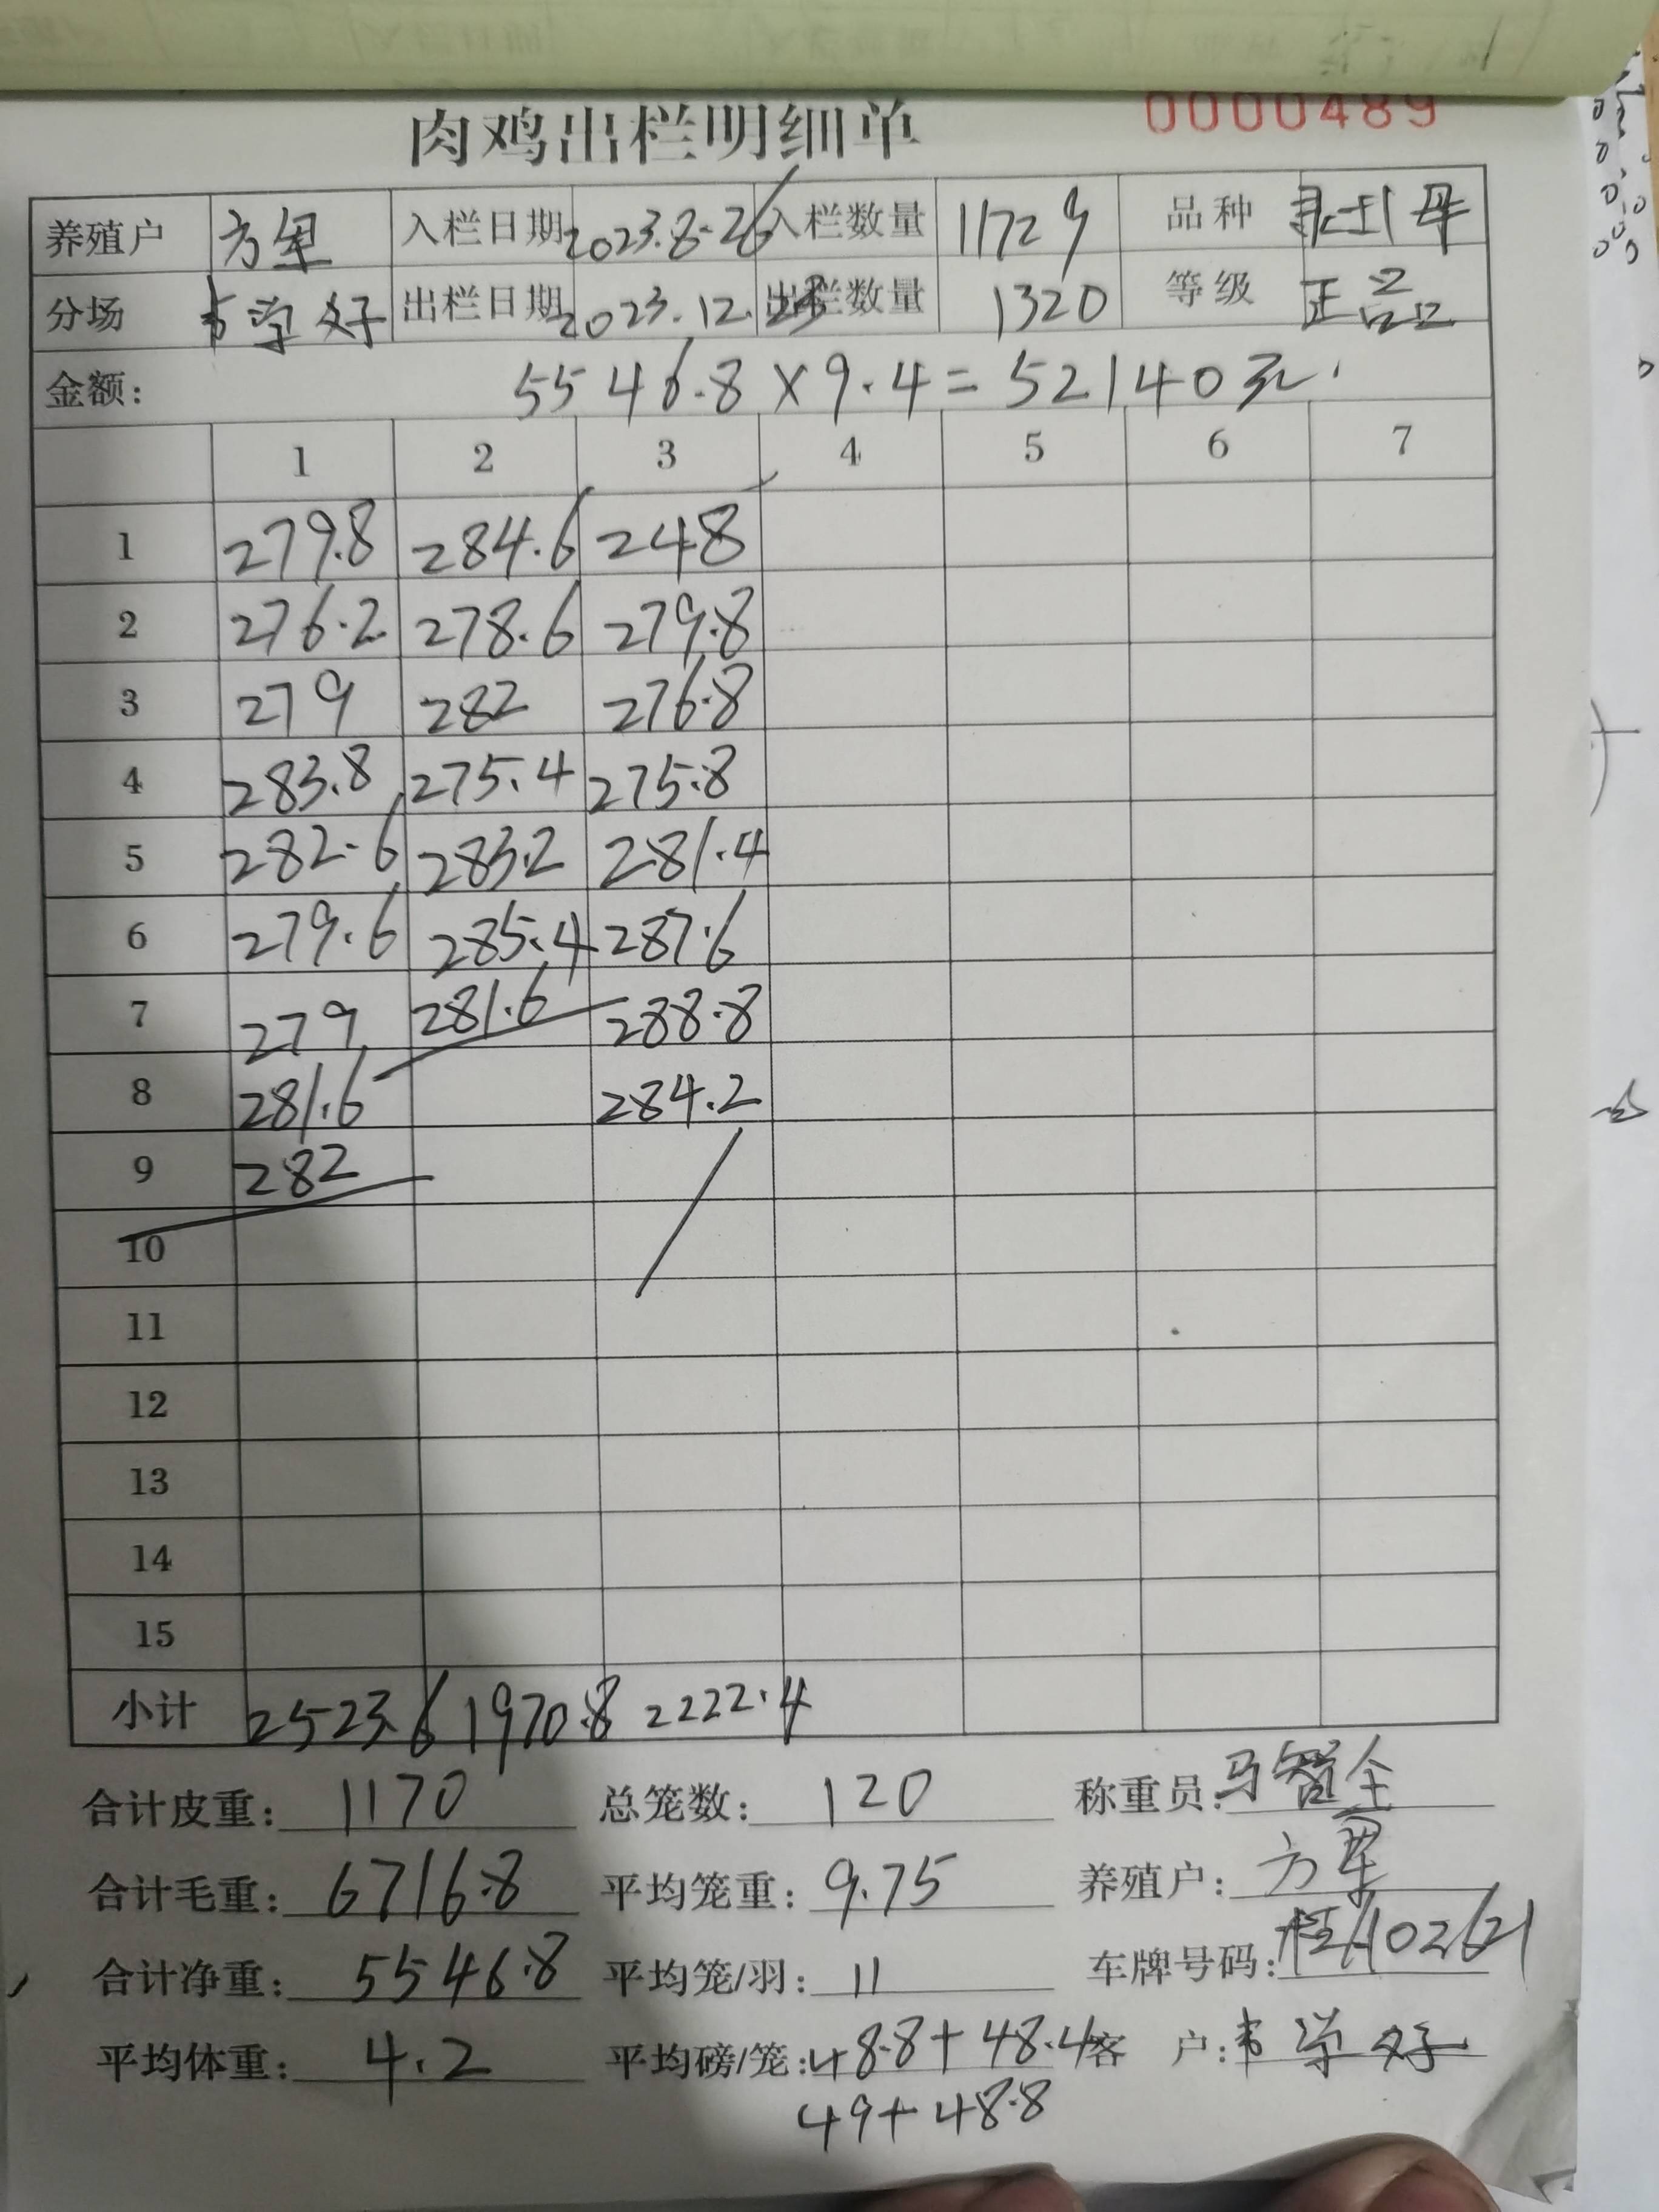 肉鸡出栏明细单 0000489
养殖户 方军 入栏日期 2023.8.26 入栏数量 11729 品种
分场 韦学好 出栏日期 2023.12. 出栏数量 1320 等级 正品
金额: 5546.8×9.4=52140元.
1 2 3 4 5 6 7
1 279.8 284.6 248
2 276.2 278.6 279.8
3 279 282 276.8
4 283.8 275.4 275.8
5 282.6 283.2 281.4
6 279.6 285.4 287.6
7 279 281.6 288.8
8 281.6 284.2
9 282
10
11
12
13
14
15
小计 2523.6 1970.8 2222.4
合计皮重: 1170 总笼数: 120 称重员: 马智全
合计毛重: 6716.8 平均笼重: 9.75 养殖户: 方军
合计净重: 5546.8 平均笼/羽: 11 车牌号码:
平均体重: 4.2 平均磅/笼: 48.8+48.4 客 户: 韦学好
49+48.8